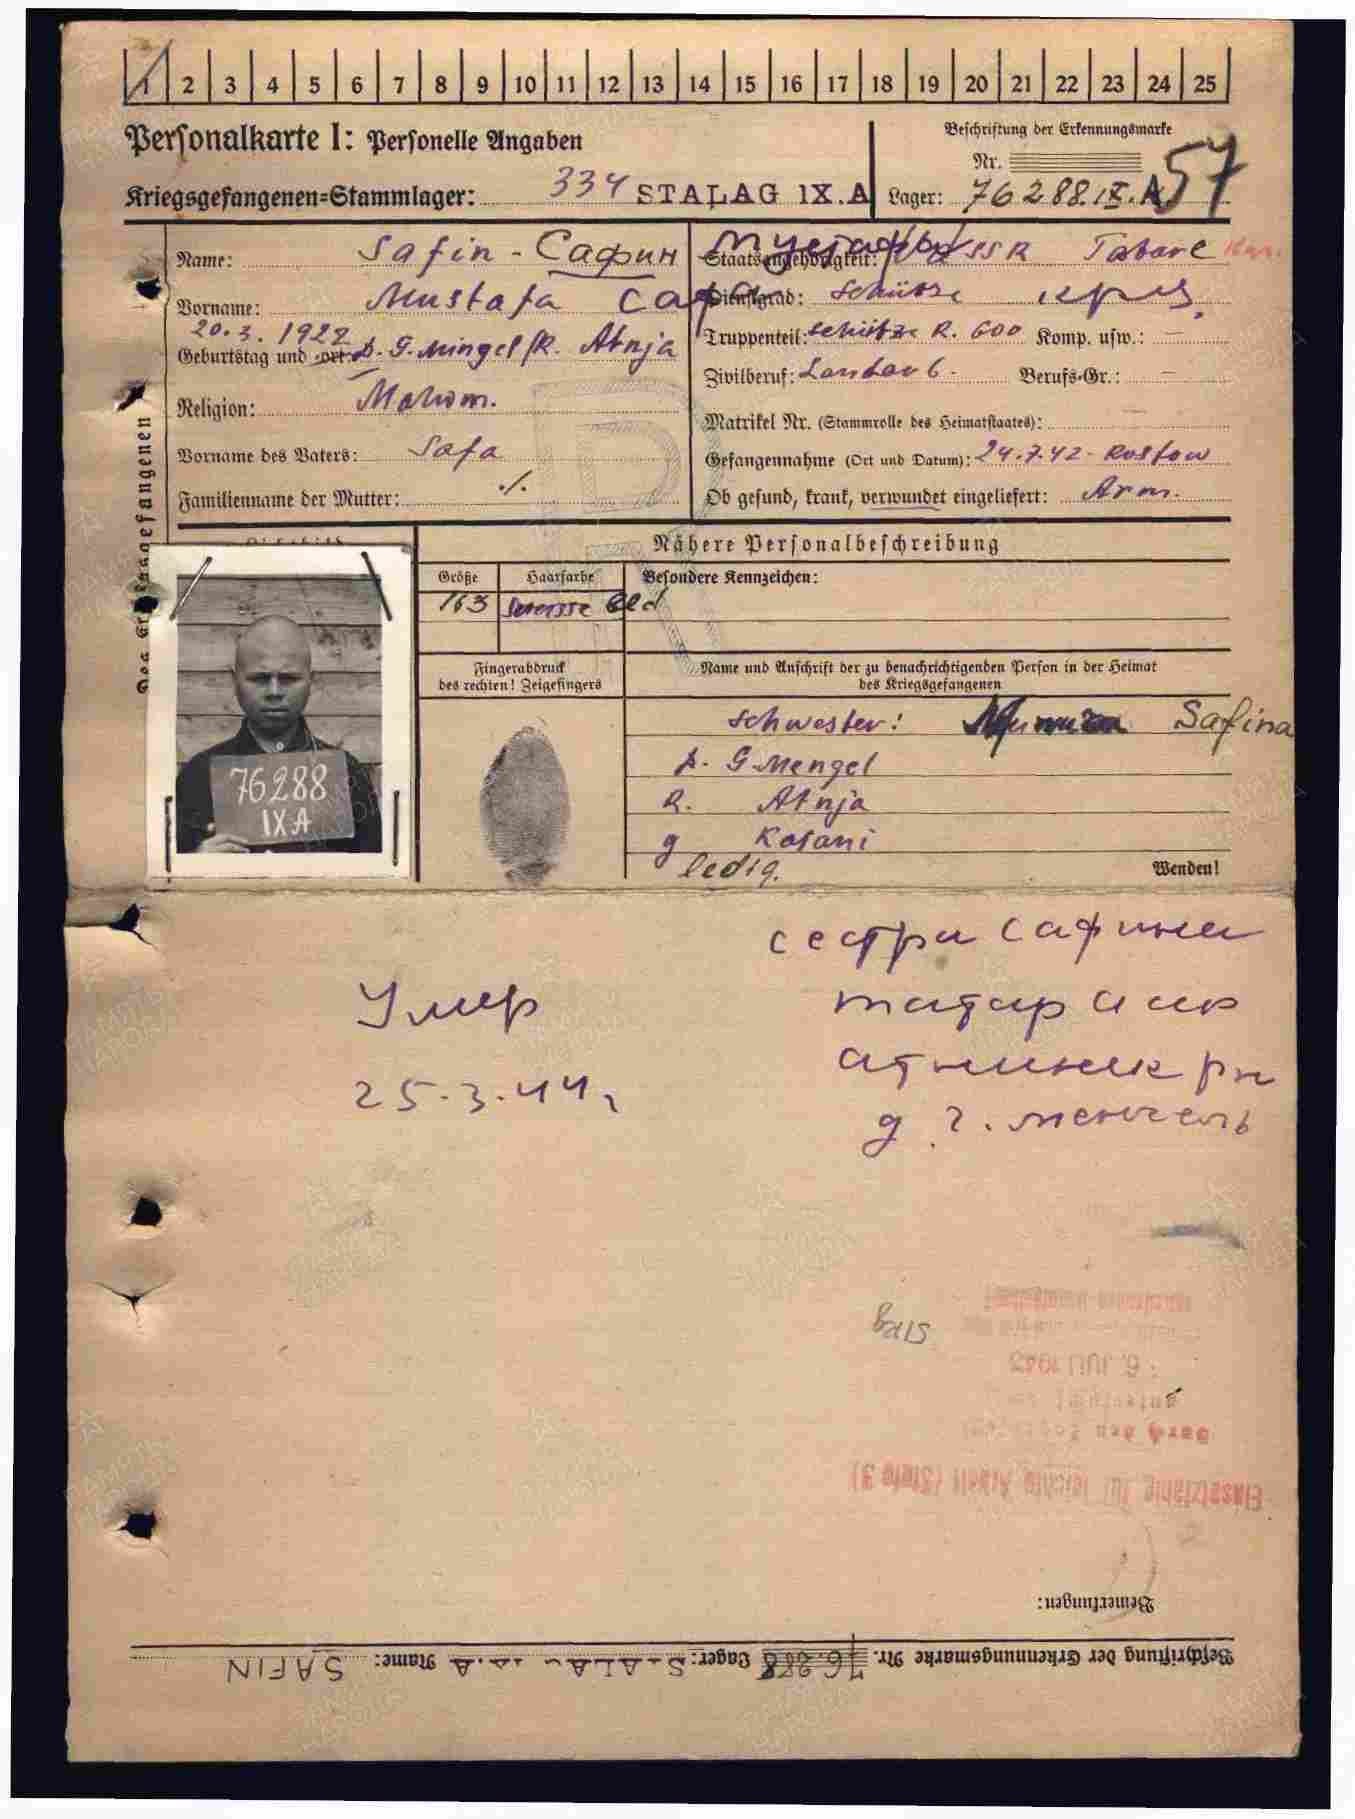 1 2 3 4 5 6 7 8 9 10 11 12 13 14 15 16 17 18 19 20 21 22 23 24 25
Personalkarte I: Personelle Angaben
Beschriftung der Erkennungsmarke
Nr.
57
Kriegsgefangenen-Stammlager: 334 STALAG IX.A
Lager: 76288.IX.A
Des Kriegsgefangenen
Name: Safin - Сафин
Vorname: Mustafa Сафа
20.3.1922
Geburtstag und -ort: D. G. Mingel R. Atnja
Religion: Mohom.
Vorname des Vaters: Safa
Familienname der Mutter: ./.
Мустафа
Staatsangehörigkeit: SSR
Dienstgrad: Schütze кр-ц
Truppenteil: Schütze R. 600 Komp. usw.: —
Zivilberuf: Landarb. Berufs-Gr.: —
Matrikel Nr. (Stammrolle des Heimatstaates):
Gefangennahme (Ort und Datum): 24.7.42 - Rostow
Ob gesund, krank, verwundet eingeliefert: Arm.
Nähere Personalbeschreibung
Größe
Haarfarbe
Besondere Kennzeichen:
163
Fingerabdruck
des rechten! Zeigefingers
Name und Anschrift der zu benachrichtigenden Person in der Heimat
des Kriegsgefangenen
76288
IXA
Schwester: Safina
D. G Mengel
R. Atnja
g Kasani
ledig.
Wenden!
сестра Сафина
татар
Умер
25.3.44г
д. г. менгель
6. JULI 1943
Einsatzfähig für leichte Arbeit (Stufe 3)
Bemerkungen:
Beschriftung der Erkennungsmarke Nr. 76.288 Lager: STALAG IX.A Name: SAFIN